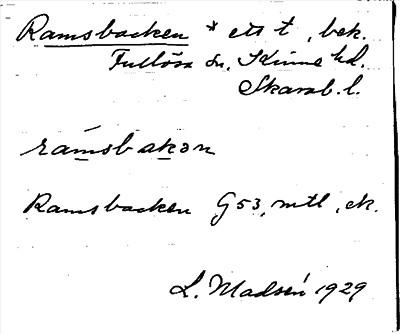 Ramsbacken * ett t, bek.
Fullösa sn. Kinne hd.
Skarab. l.
ramsbakən
Ramsbacken G53, mtl, ek.
L. Madsén 1929